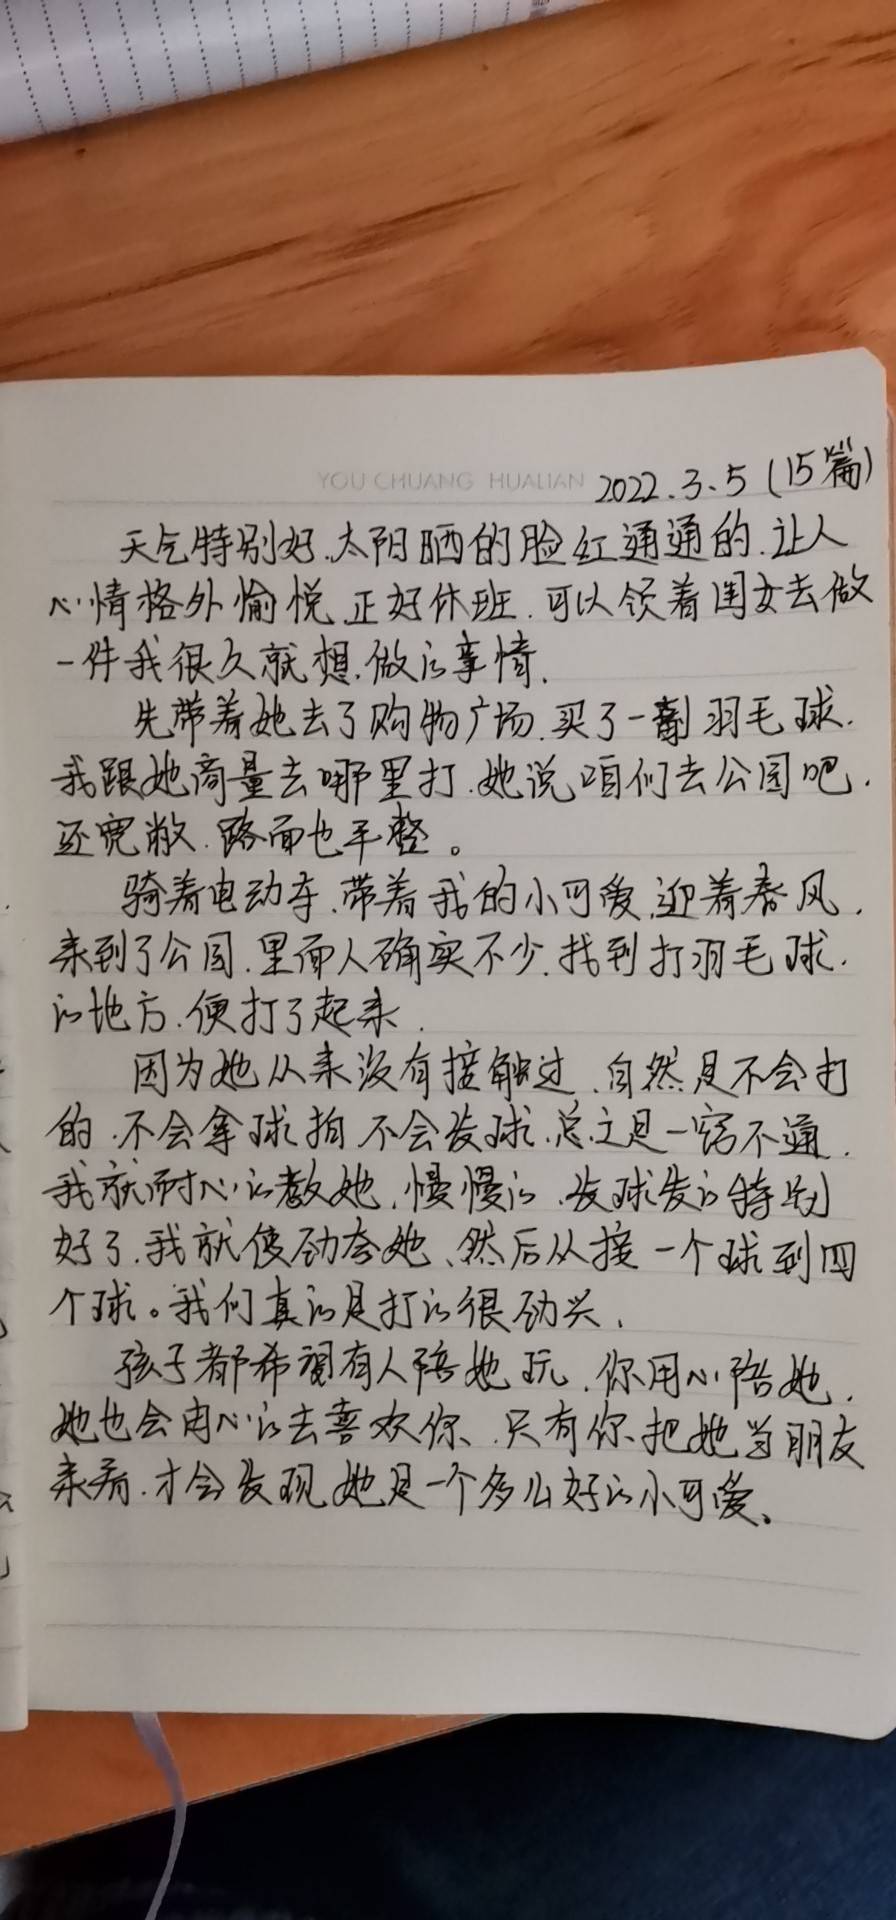 YOU CHUANG HUALIAN 2022.3.5 (15篇)
天气特别好.太阳晒的脸红通通的.让人
心情格外愉悦.正好休班.可以领着闺女去做
一件我很久就想.做的事情.
先带着她去了购物广场.买了一副羽毛球.
我跟她商量去哪里打.她说咱们去公园吧.
还宽敞.路面也平整。
骑着电动车.带着我的小可爱.迎着春风.
来到了公园.里面人确实不少.找到打羽毛球.
的地方.便打了起来.
因为她从来没有接触过.自然是不会打
的.不会拿球拍.不会发球.总之是一窍不通.
我就耐心的教她.慢慢的.发球发的特别
好了.我就使劲夸她、然后从接一个球到四
个球。我们真的是打的很劲兴.
孩子都希望有人陪她玩.你用心陪她.
她也会用心的去喜欢你、只有你把她当朋友
来看.才会发现她是一个多么好的小可爱。